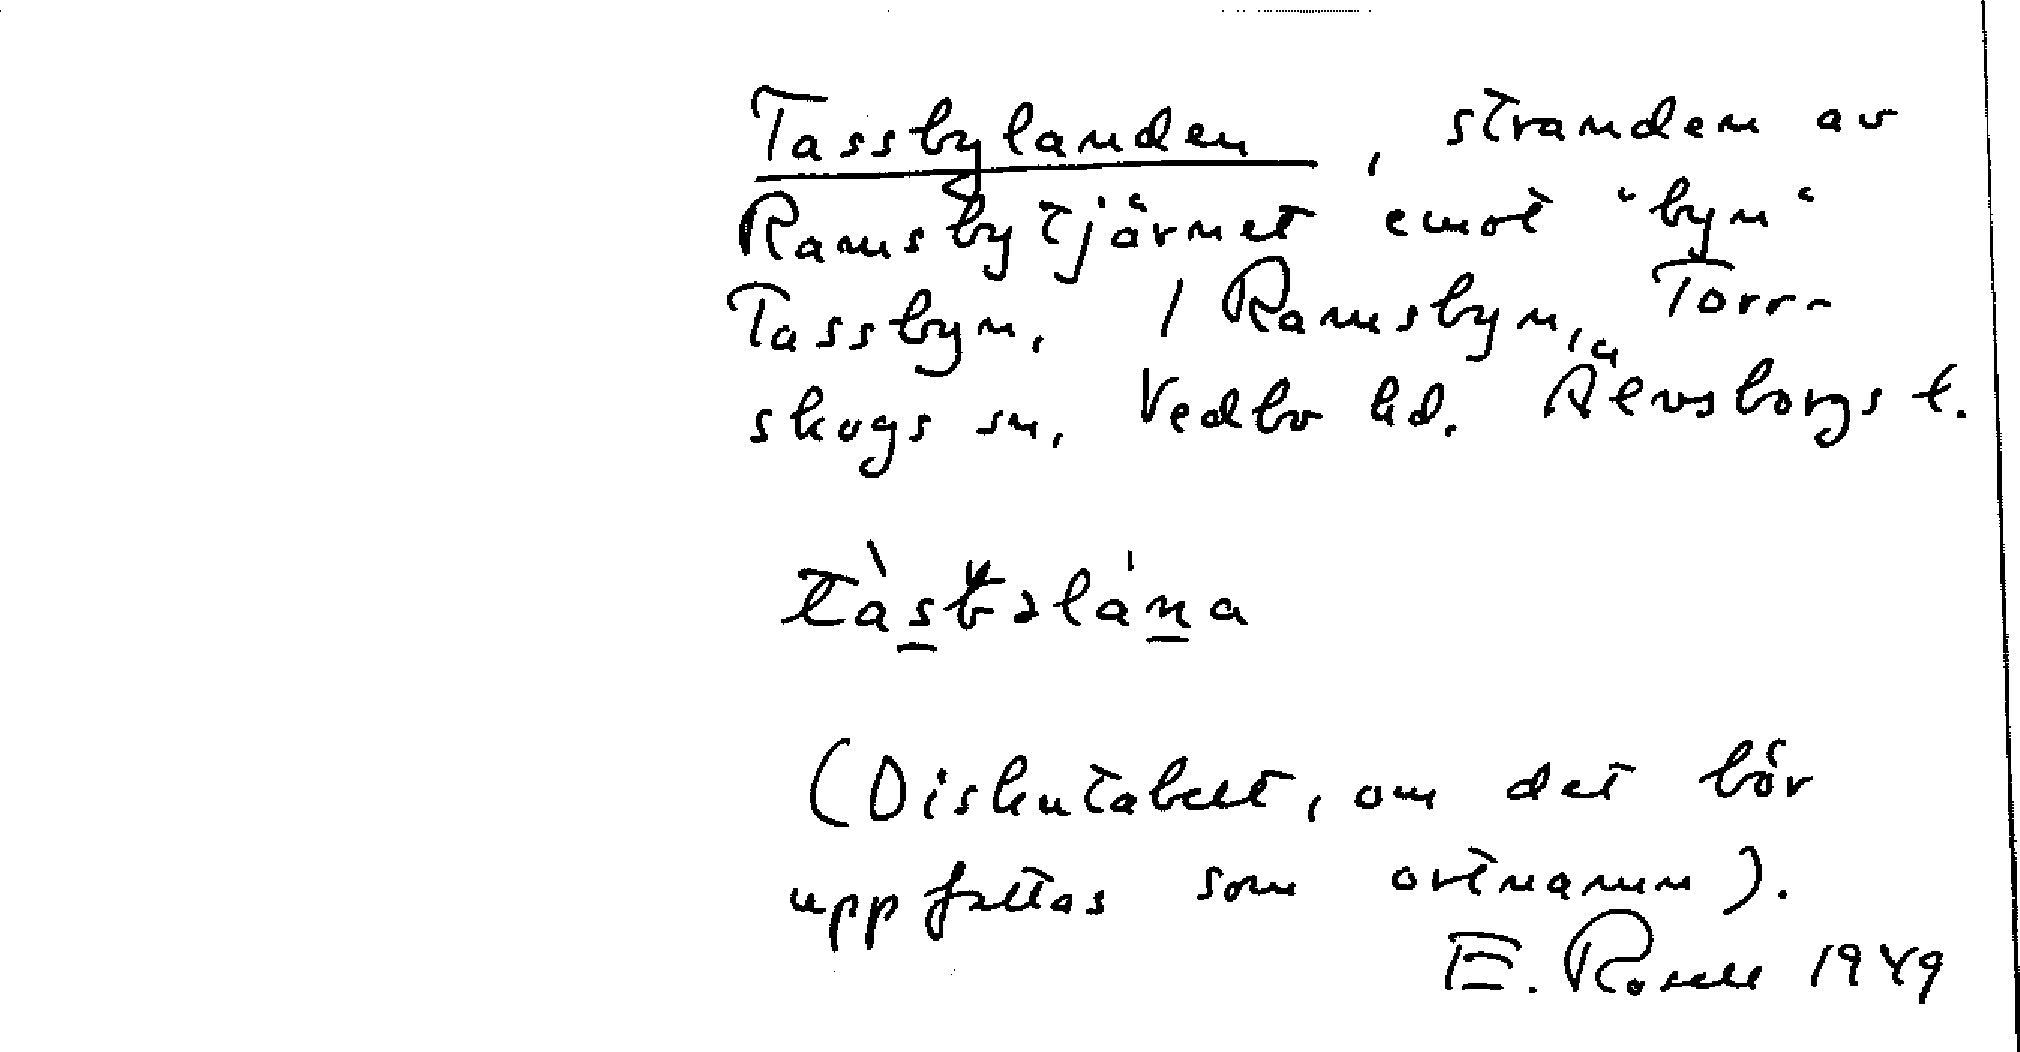 Tassbylanden, stranden av
Ramsbytjärnet emot "byn"
Tassbyn, / Ramsbyn, Torr-
skogs sn, Vedbo hd. Älvsborgs l.
(Diskutabelt, om det bör
uppfattas som ortnamn).
E. Rosell 1949